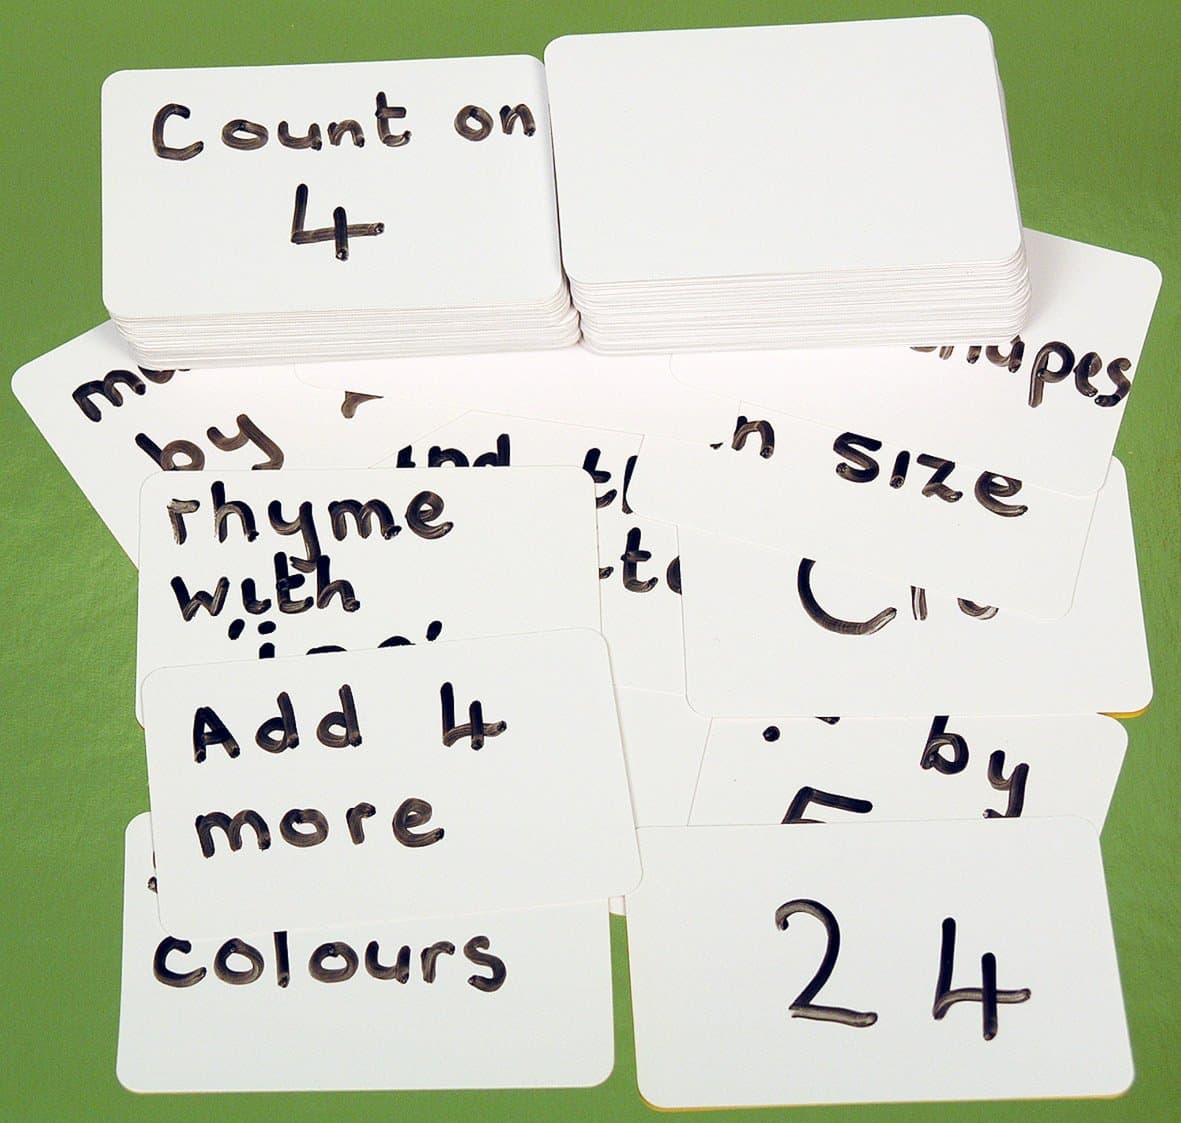 Count on
4
by
shapes
size
rhyme
with
Add 4
more
by
5
colours
24